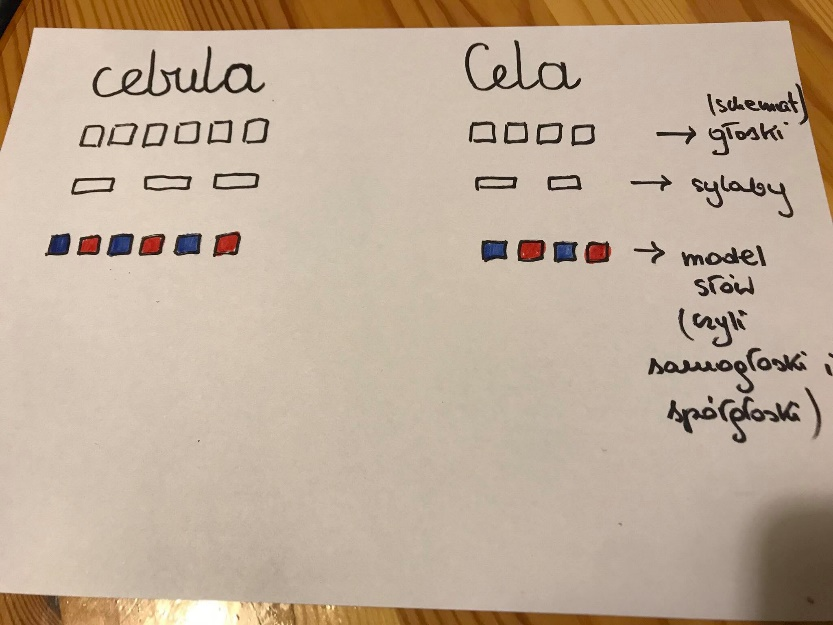 cebula
Cela
(schemat)
głoski
sylaby
model
słów
(czyli
samogłoski i
spółgłoski)